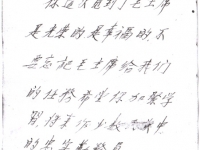 你这次见到了毛主席
是光荣的是幸福的不
要忘记毛主席给我们
的任务希望你加紧学
习将来作少数民族中
的